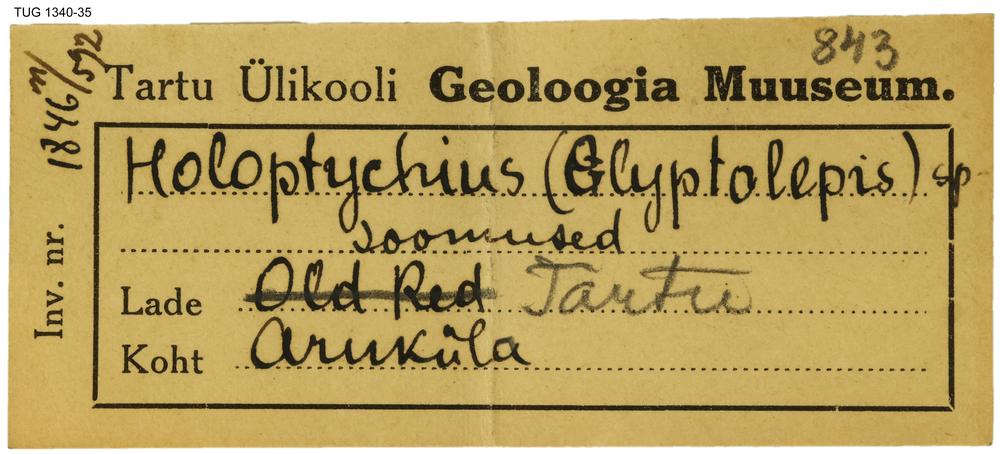 TUG 1340-35
843
Tartu Ülikooli Geoloogia Muuseum.
Holoptychius (Glyptolepis) sp
soomused
Lade Old Red Tartu
Koht Aruküla
Inv. nr. 1846 n/592